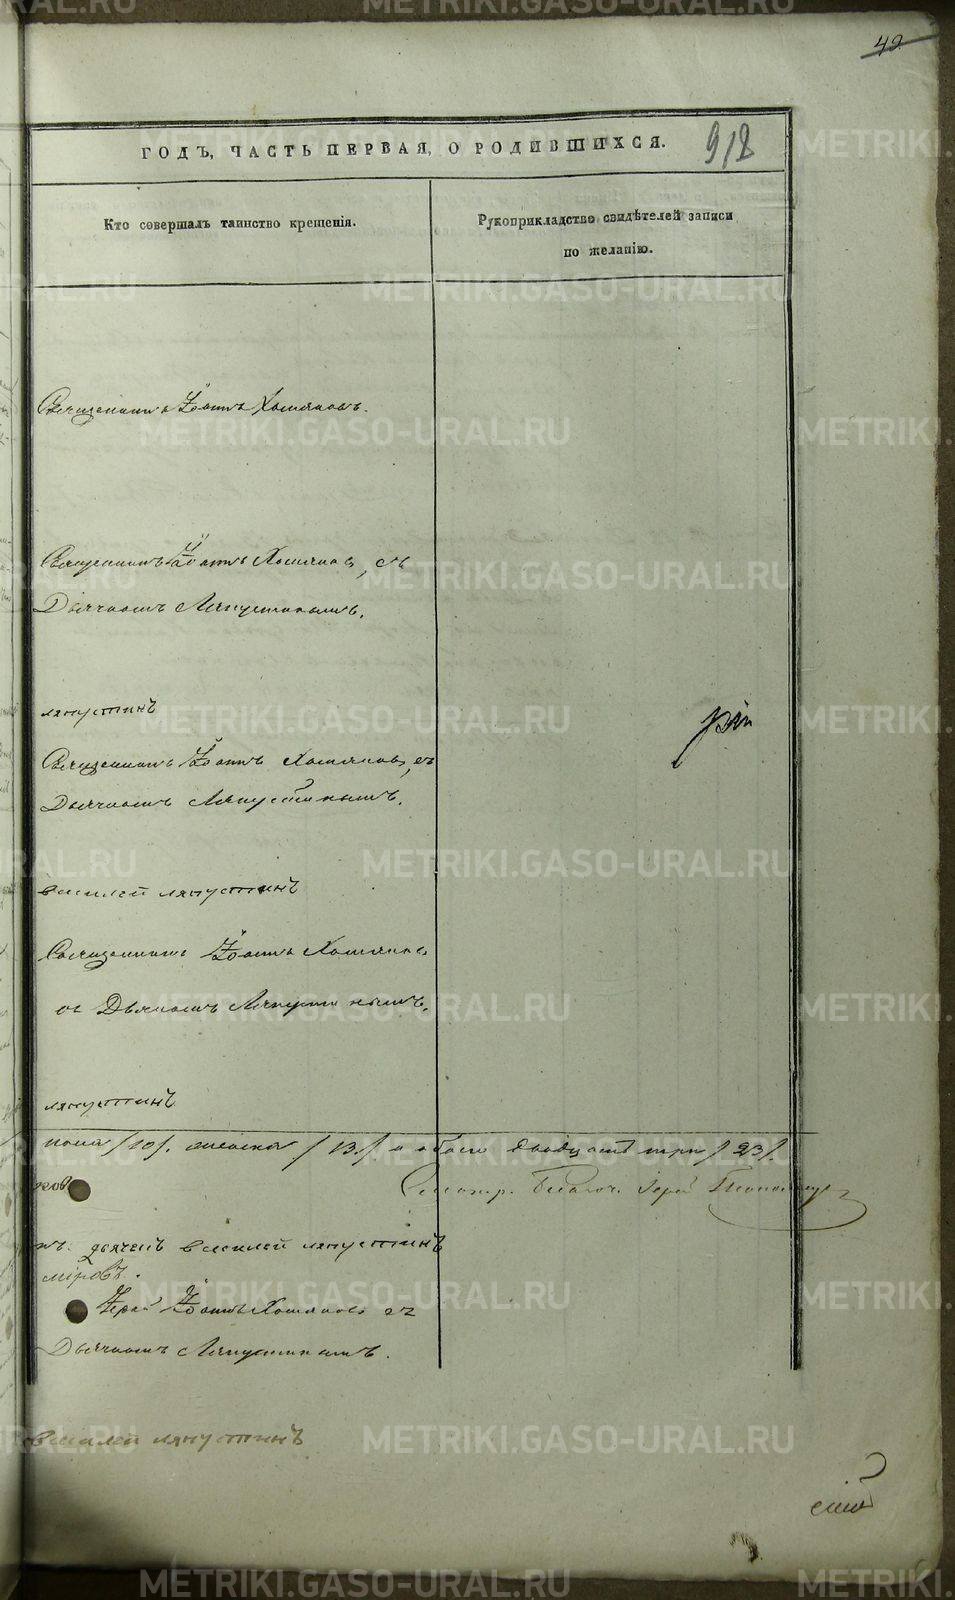 49
ГОДЪ, ЧАСТЬ ПЕРВАЯ, О РОДИВШИХСЯ.
918
Кто совершалъ таинство крещенія.
Рукоприкладство свидѣтелей записи
по желанію.
Священникъ Іоаннъ Хомяковъ.
Священникъ Іоаннъ Хомяковъ, съ
Дьячкомъ Ляпустинымъ.
ляпустинъ
Священникъ Іоаннъ Хомяковъ, съ
Дьячкомъ Ляпустинымъ.
василей ляпустинъ
Священникъ Іоаннъ Хомяковъ
съ Дьячкомъ Ляпустинымъ.
ляпустинъ
пола /10/. женска /13./ а обоего двадцать три /23/
Смотр. Благоч. Іерей
дьячекъ василей ляпустинъ
міровъ.
Іерей Іоаннъ Хомяковъ съ
Дьячкомъ Ляпустинымъ.
василей ляпустинъ
METRIKI.GASO-URAL.RU